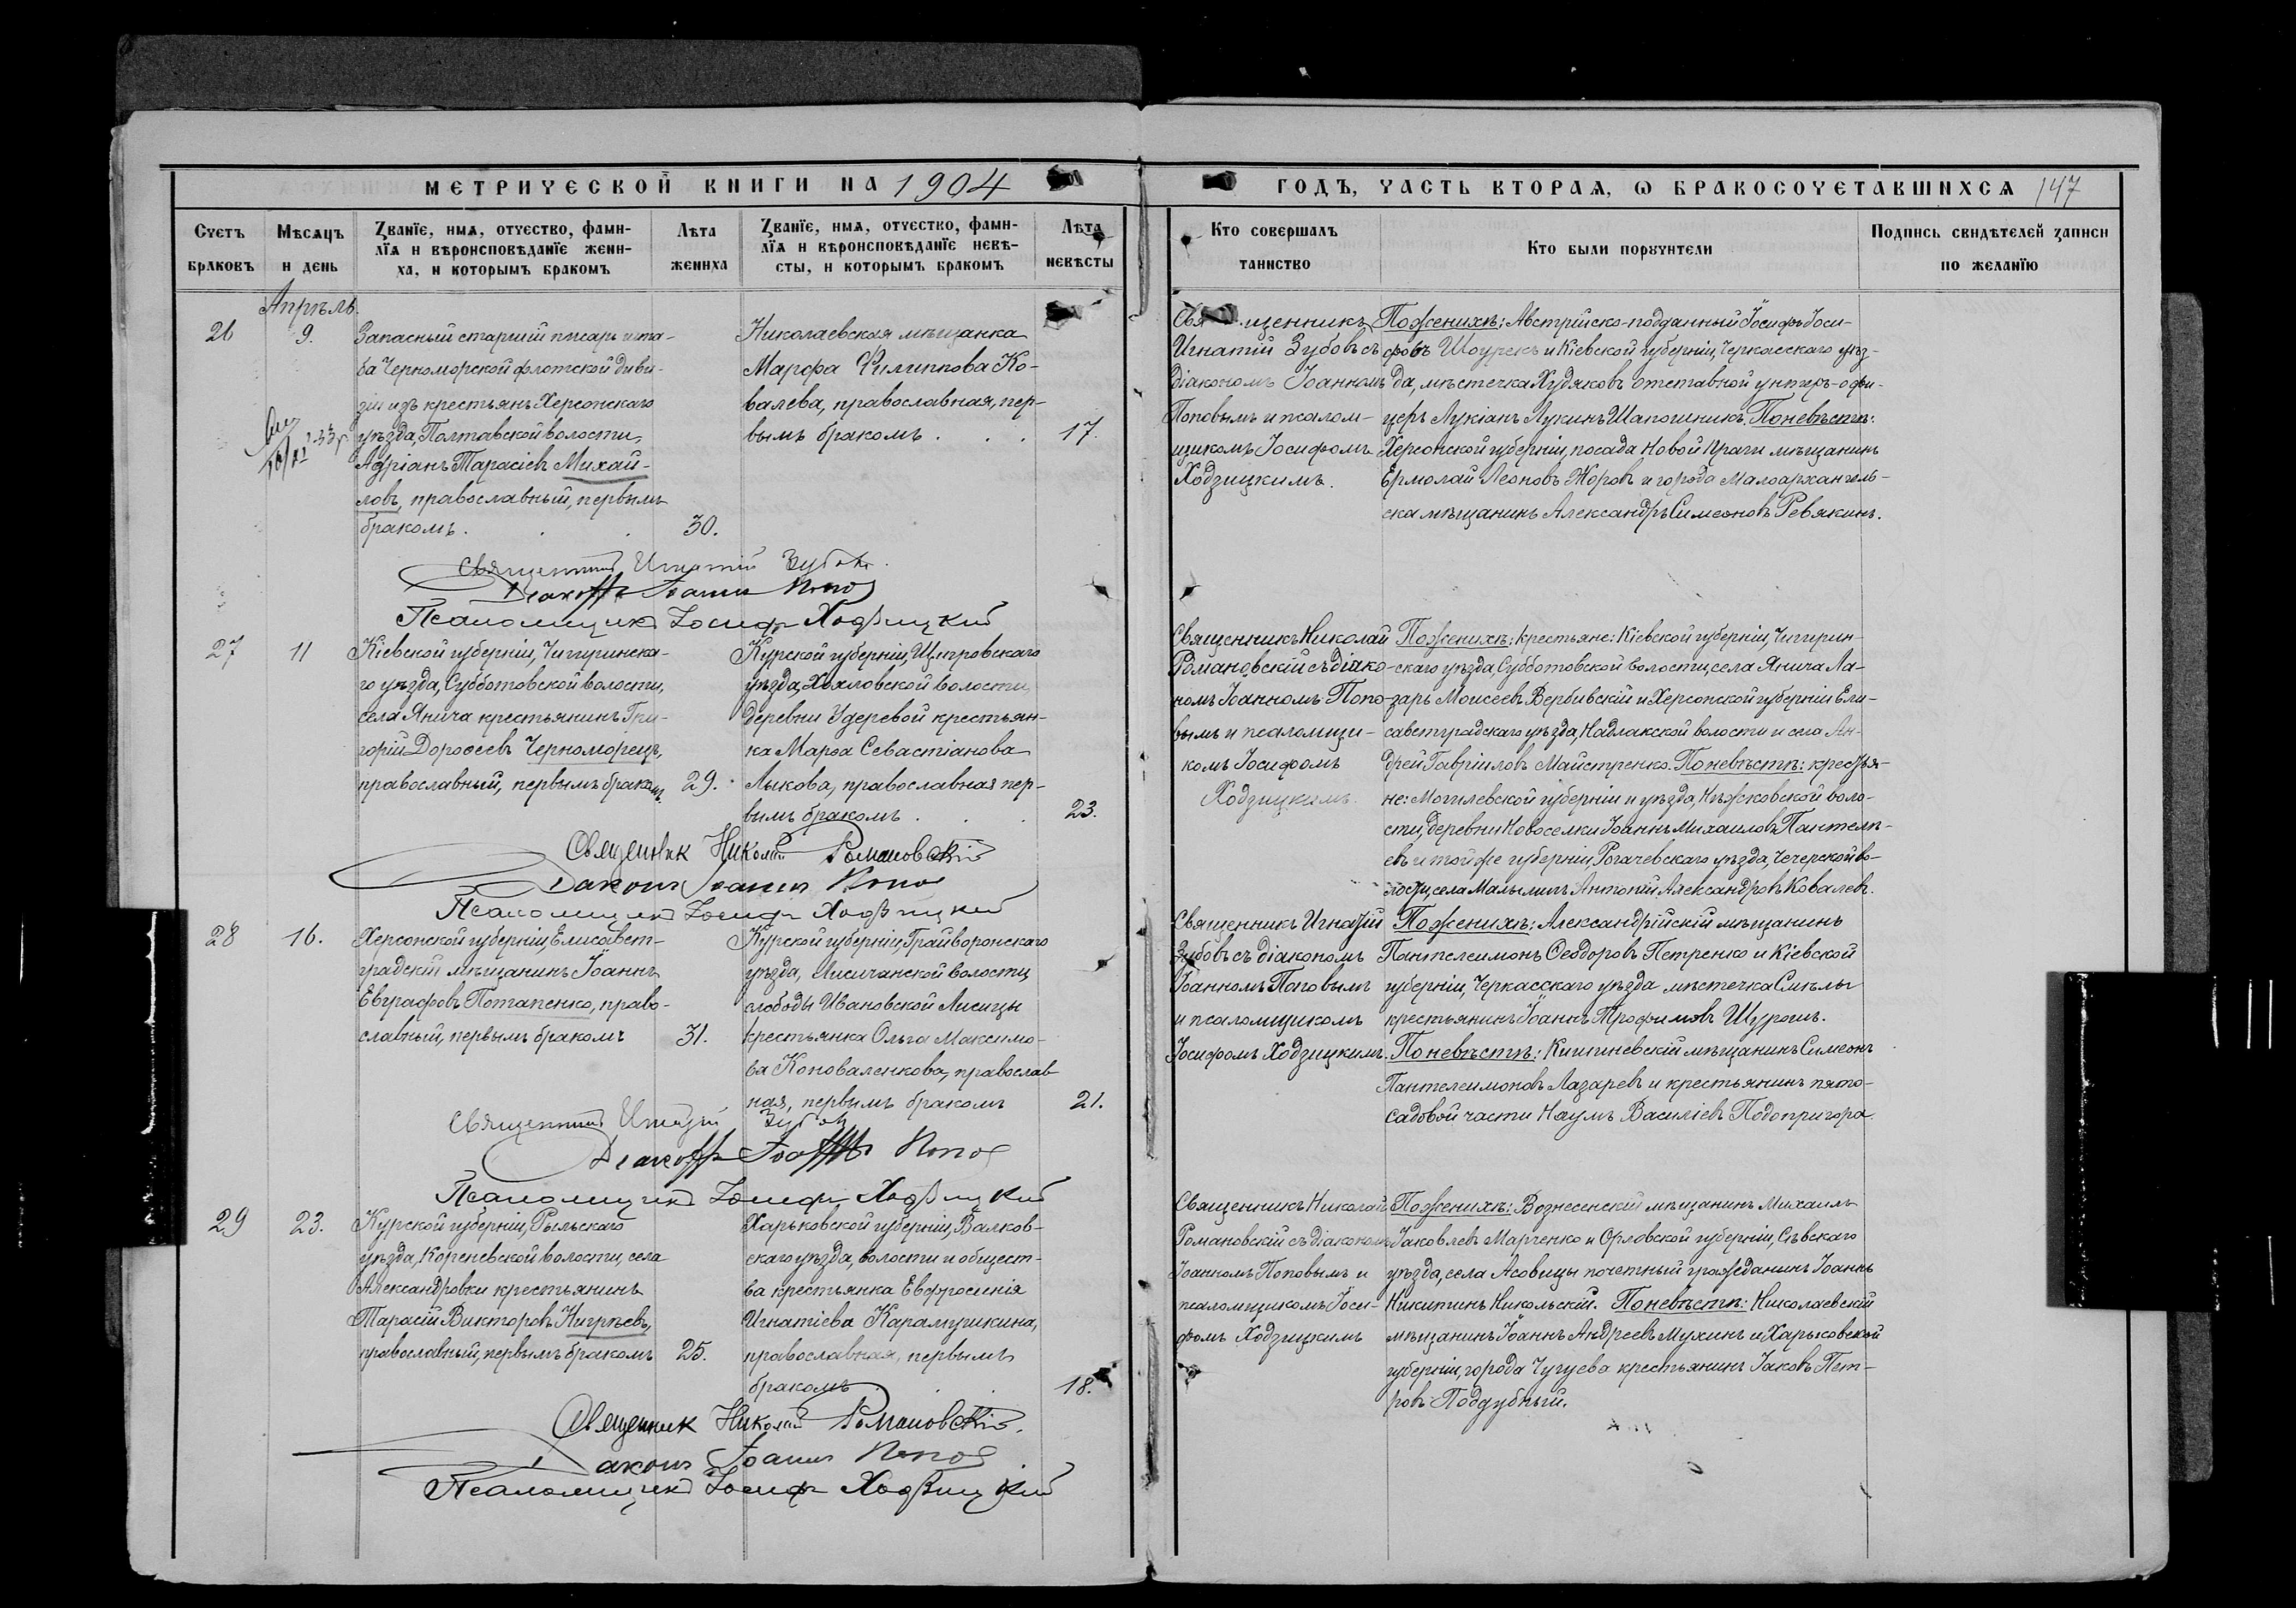 МЕТРИЧЕСКОЙ КНИГИ НА 1904
ГОДЪ, ЧАСТЬ ВТОРАЯ, Ѡ БРАКОСОЧЕТАВШИХСЯ 147
Счетъ браковъ
Мѣсяцъ и день
Званїе, имя, отчество, фами-
лїя и вѣроисповѣданїе жени-
ха, и которымъ бракомъ
Лѣта жениха
Званїе, имя, отчество, фами-
лїя и вѣроисповѣданїе невѣ-
сты, и которымъ бракомъ
Лѣта невѣсты
Кто совершалъ таинство
Кто были поручители
Подпись свидѣтелей записи по желанїю
Апрѣль.
26
9.
Запасный старшій писарь шта-
ба Черноморской флотской диви-
зіи изъ крестьянъ Херсонскаго
уѣзда, Полтавской волости,
Адріанъ Тарасіевъ Михай-
ловъ, православный, первымъ
бракомъ . . . 30.
Николаевская мѣщанка
Марфа Филиппова Ко-
валева, православная, пер-
вымъ бракомъ . . . 17.
Священникъ
Игнатій Зубовъ съ
діакономъ Іоанномъ
Поповымъ и псалом-
щикомъ Іосифомъ
Ходзицкимъ.
По женихѣ: Австрійско-подданный Іосифъ Іоси-
фовъ Шоурекъ и Кіевской губерніи, Черкасскаго уѣз-
да, мѣстечка Худяковъ отставной унтеръ-офи-
церъ Лукіанъ Лукинъ Шапошникъ. По невѣстѣ:
Херсонской губерніи, посада Новой Праги мѣщанинъ
Ермолай Леоновъ Жоровъ и города Малоархангель-
ска мѣщанинъ Александръ Симеоновъ Ревякинъ.
Священникъ Игнатій Зубовъ.
Діаконъ Іоаннъ Попов
Псаломщикъ Іосифъ Ходзицкій
27
11
Кіевской губерніи, Чигиринска-
го уѣзда, Субботовской волости,
села Янича крестьянинъ Гри-
горій Дороѳеевъ Черноморецъ,
православный, первымъ бракомъ. 29.
Курской губерніи, Щигровскаго
уѣзда, Хохловской волости,
деревни Удеревой крестьян-
ка Марѳа Севастіанова
Лыкова, православная пер-
вымъ бракомъ . . . 23.
Священникъ Николай
Романовскій съ діако-
номъ Іоанномъ Попо-
вымъ и псаломщи-
комъ Іосифомъ
Ходзицкимъ.
По женихѣ: крестьяне: Кіевской губерніи, Чигирин-
скаго уѣзда, Субботовской волости, села Янича Ла-
зарь Моисеевъ Вербивскій и Херсонской губерніи Ели-
саветградскаго уѣзда, Надлакской волости и села Ан-
дрей Гавріиловъ Майстренко. По невѣстѣ: крестья-
не: Могилевской губерніи и уѣзда, Княжковской воло-
сти, деревни Новоселки Іоаннъ Михаиловъ Пантелѣ-
евъ и той же губерніи, Рогачевскаго уѣзда, Чечерской во-
лости, села Малыничъ Антоній Александровъ Ковалевъ.
Священникъ Николай Романовскій
Діаконъ Іоаннъ Попов
Псаломщикъ Іосифъ Ходзицкій
28
16.
Херсонской губерніи, Елисавет-
градскій мѣщанинъ Іоаннъ
Евграфовъ Потапенко, право-
славный, первымъ бракомъ 31.
Курской губерніи, Грайворонскаго
уѣзда, Лисичанской волости,
слободы Ивановской Лисицы
крестьянка Ольга Максимо-
ва Коноваленкова, православ-
ная, первымъ бракомъ 21.
Священникъ Игнатій
Зубовъ съ діакономъ
Іоанномъ Поповымъ
и псаломщикомъ
Іосифомъ Ходзицкимъ.
По женихѣ: Александрійскій мѣщанинъ
Пантелеимонъ Ѳеодоровъ Петренко и Кіевской
губерніи, Черкасскаго уѣзда мѣстечка Смѣлы
крестьянинъ Іоаннъ Трофимовъ Щурокъ.
По невѣстѣ: Кишиневскій мѣщанинъ Симеонъ
Пантелеимоновъ Лазаревъ и крестьянинъ пято-
садовой части Наумъ Василіевъ Подопригора
Священникъ Игнатій Зубовъ
Діаконъ Іоаннъ Попов
Псаломщикъ Іосифъ Ходзицкій
29
23.
Курской губерніи, Рыльскаго
уѣзда, Кореневской волости, села
Александровки крестьянинъ
Тарасій Викторовъ Нигрѣевъ,
православный, первымъ бракомъ 25.
Харьковской губерніи, Валков-
скаго уѣзда, волости и общест-
ва крестьянка Евфросинія
Игнатіева Карамушкина,
православная, первымъ
бракомъ . . . 18.
Священникъ Николай
Романовскій съ діакономъ
Іоанномъ Поповымъ и
псаломщикомъ Іоси-
фомъ Ходзицкимъ
По женихѣ: Вознесенскій мѣщанинъ Михаилъ
Іаковлевъ Марченко и Орловской губерніи, Сѣвскаго
уѣзда, села Асовицы почетный гражданинъ Іоаннъ
Никитинъ Никольскій. По невѣстѣ: Николаевскій
мѣщанинъ Іоаннъ Андреевъ Мухинъ и Харьковской
губерніи, города Чугуева крестьянинъ Іаковъ Пет-
ровъ Поддубный.
Священникъ Николай Романовскій.
Діаконъ Іоаннъ Попов
Псаломщикъ Іосифъ Ходзицкій